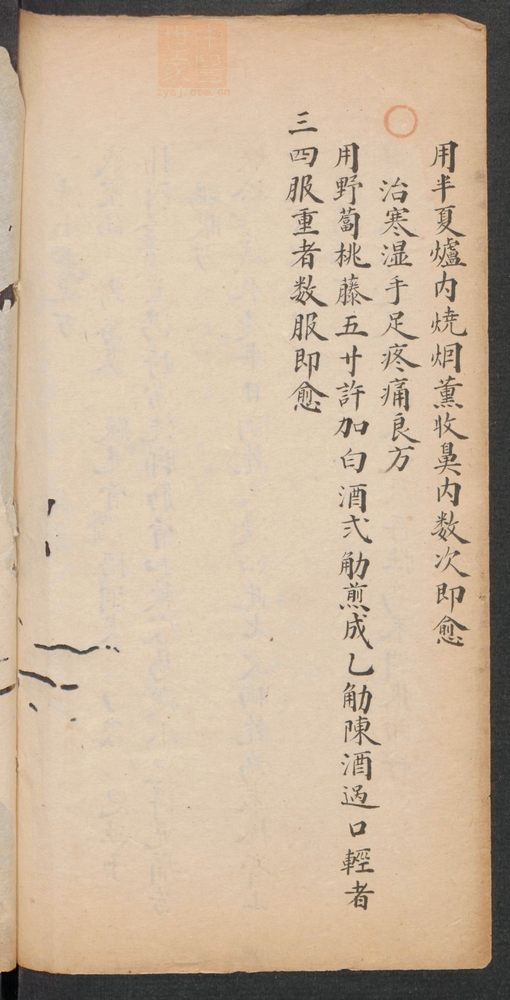 用半夏爐内焼烟薫收鼻内数次即愈
治寒湿手足疼痛良方
用野萄桃藤五廾許加白酒弍觔煎成乚觔陳酒過口輕者
三四服重者数服即愈